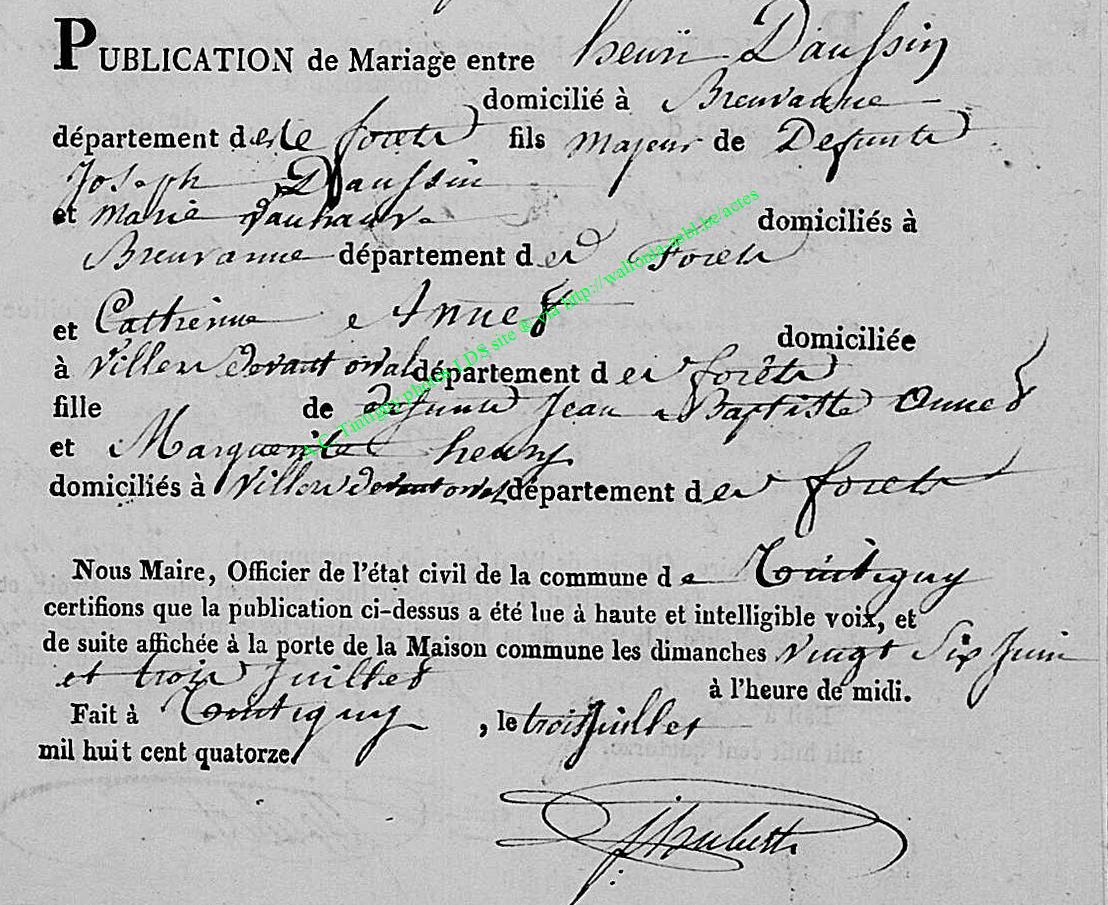 PUBLICATION de Mariage entre henri Daussin
domicilié à Breuvanne
département des forets fils majeur de Defunts
Joseph Daussin
et marie
domiciliés à
Breuvanne département des Forets
et Cathrienne Annet
domiciliée
à Villers devant orval département des forêts
fille de defunts Jean Baptiste Annet
et Marguerite henry
domiciliés à Villers devant orval département des forets
Nous Maire, Officier de l'état civil de la commune de Tintigny
certifions que la publication ci-dessus a été lue à haute et intelligible voix, et
de suite affichée à la porte de la Maison commune les dimanches vingt Six Juin
et trois Juillet
à l'heure de midi.
Fait à Tintigny, le trois Juillet
mil huit cent quatorze
A.C. Tintigny photos LDS site ® via http://wallonia-asbl.be/actes